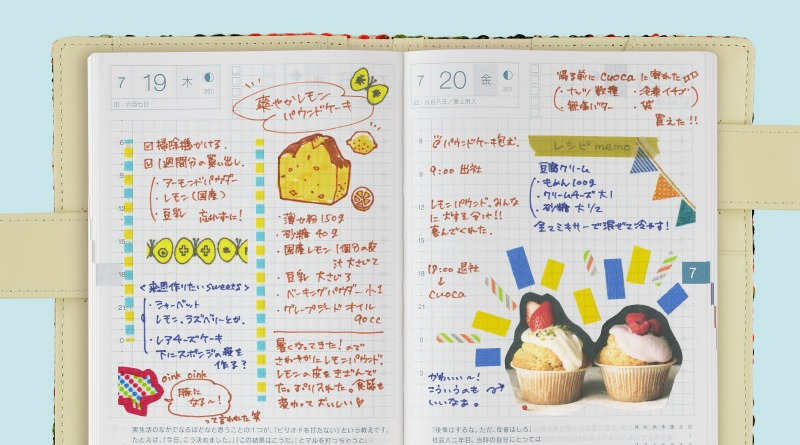 7 19 木
旧：六月七日
爽やかレモン
パウンドケーキ
☑ 掃除機かける。
☑ 1週間分の買い出し。
・アーモンドパウダー
・レモン(国産)
・豆乳 忘れずに!
<来週作りたいsweets>
・シャーベット
レモン、ラズベリーとか。
・レアチーズケーキ
下にスポンジの段を
作る?
oink oink
豚に
なる〜!
って言われた笑
・薄力粉 150g
・砂糖 40g
・国産レモン 1個分の皮
汁 大さじ2
・豆乳 大さじ3
・ベーキングパウダー 小1
・グレープシード オイル
90cc
暑くなってきた!ので
さわやかにレモンパウンド。
レモンの皮をきざんで
実生活のなかでなるほどなと思うことの1つが、「ピリオドを打たない」という教えです。
たとえば、「今日、こう決めました。」「この結果はこうだ」とマルを打っちゃうと、
7 20 金
旧：六月八日／
8
パウンドケーキ包む。
9:00 出社
レモンパウンド、みんな
に大好評!!
喜んでくれた。
18:00 退社
↓
cuoca
かわいい〜!
こういうのも
いいなぁ。
帰る前に cuoca に寄れた
・ナッツ数種 ・冷凍イチゴ
・無塩バター ・袋
買えた!!
レシピmemo
豆腐クリーム
・もめん 100g
・クリームチーズ 大1
・砂糖 大1/2
全てミキサーで混ぜて冷やす!
7
「後悔はするな。ただ、反省はしろ」
社会人二年目。当時の自分にとっては